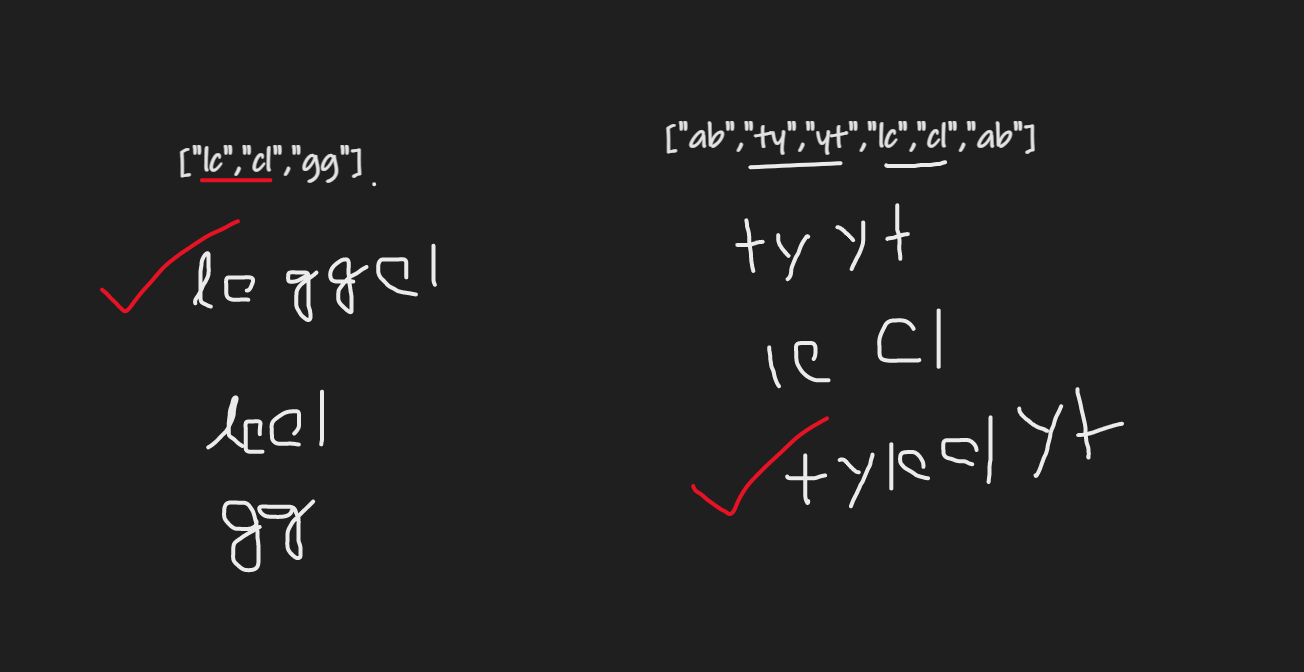 ["lc","cl","gg"].
lc gg cl
lccl
gg
["ab","ty","yt","lc","cl","ab"]
ty yt
lc cl
tylcclyt